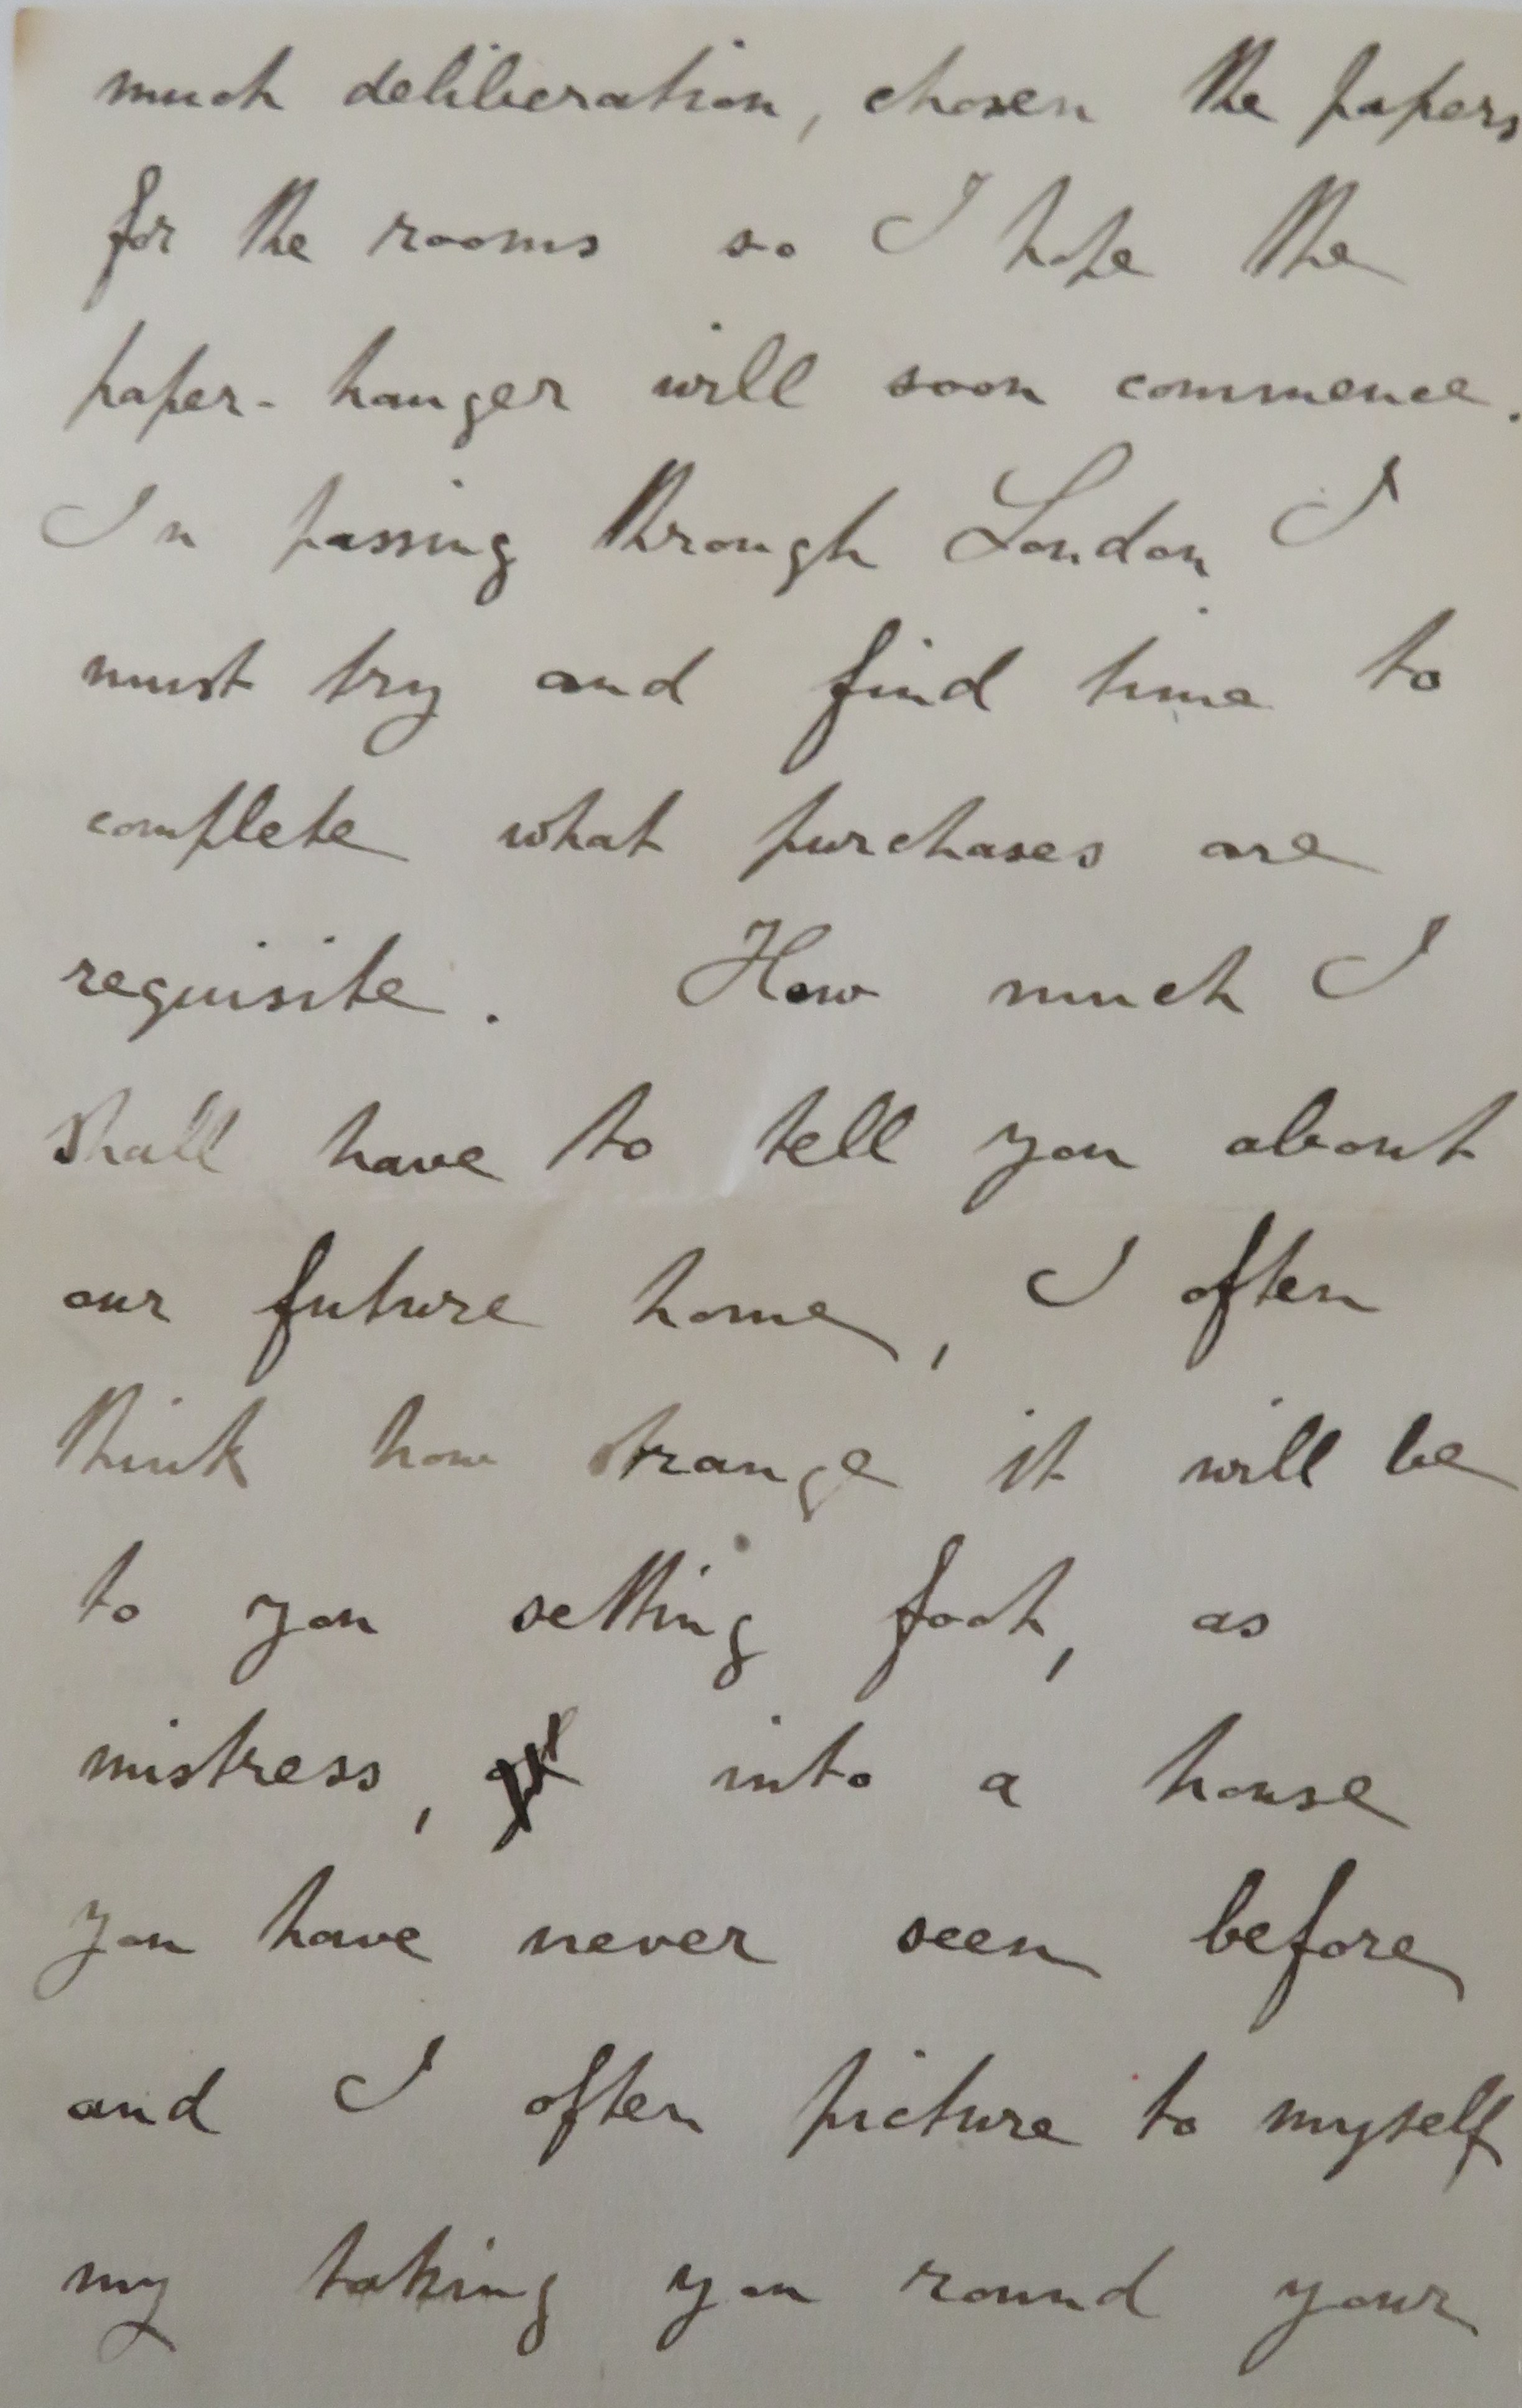 much deliberation, chosen the papers
for the rooms so I hope the
paper-hanger will soon commence.
In passing through London I
must try and find time to
complete what purchases are
requisite. How much I
shall have to tell you about
our future home, I often
think how strange it will be
to you setting foot, as
mistress, into a house
you have never seen before
and I often picture to myself
my taking you round your